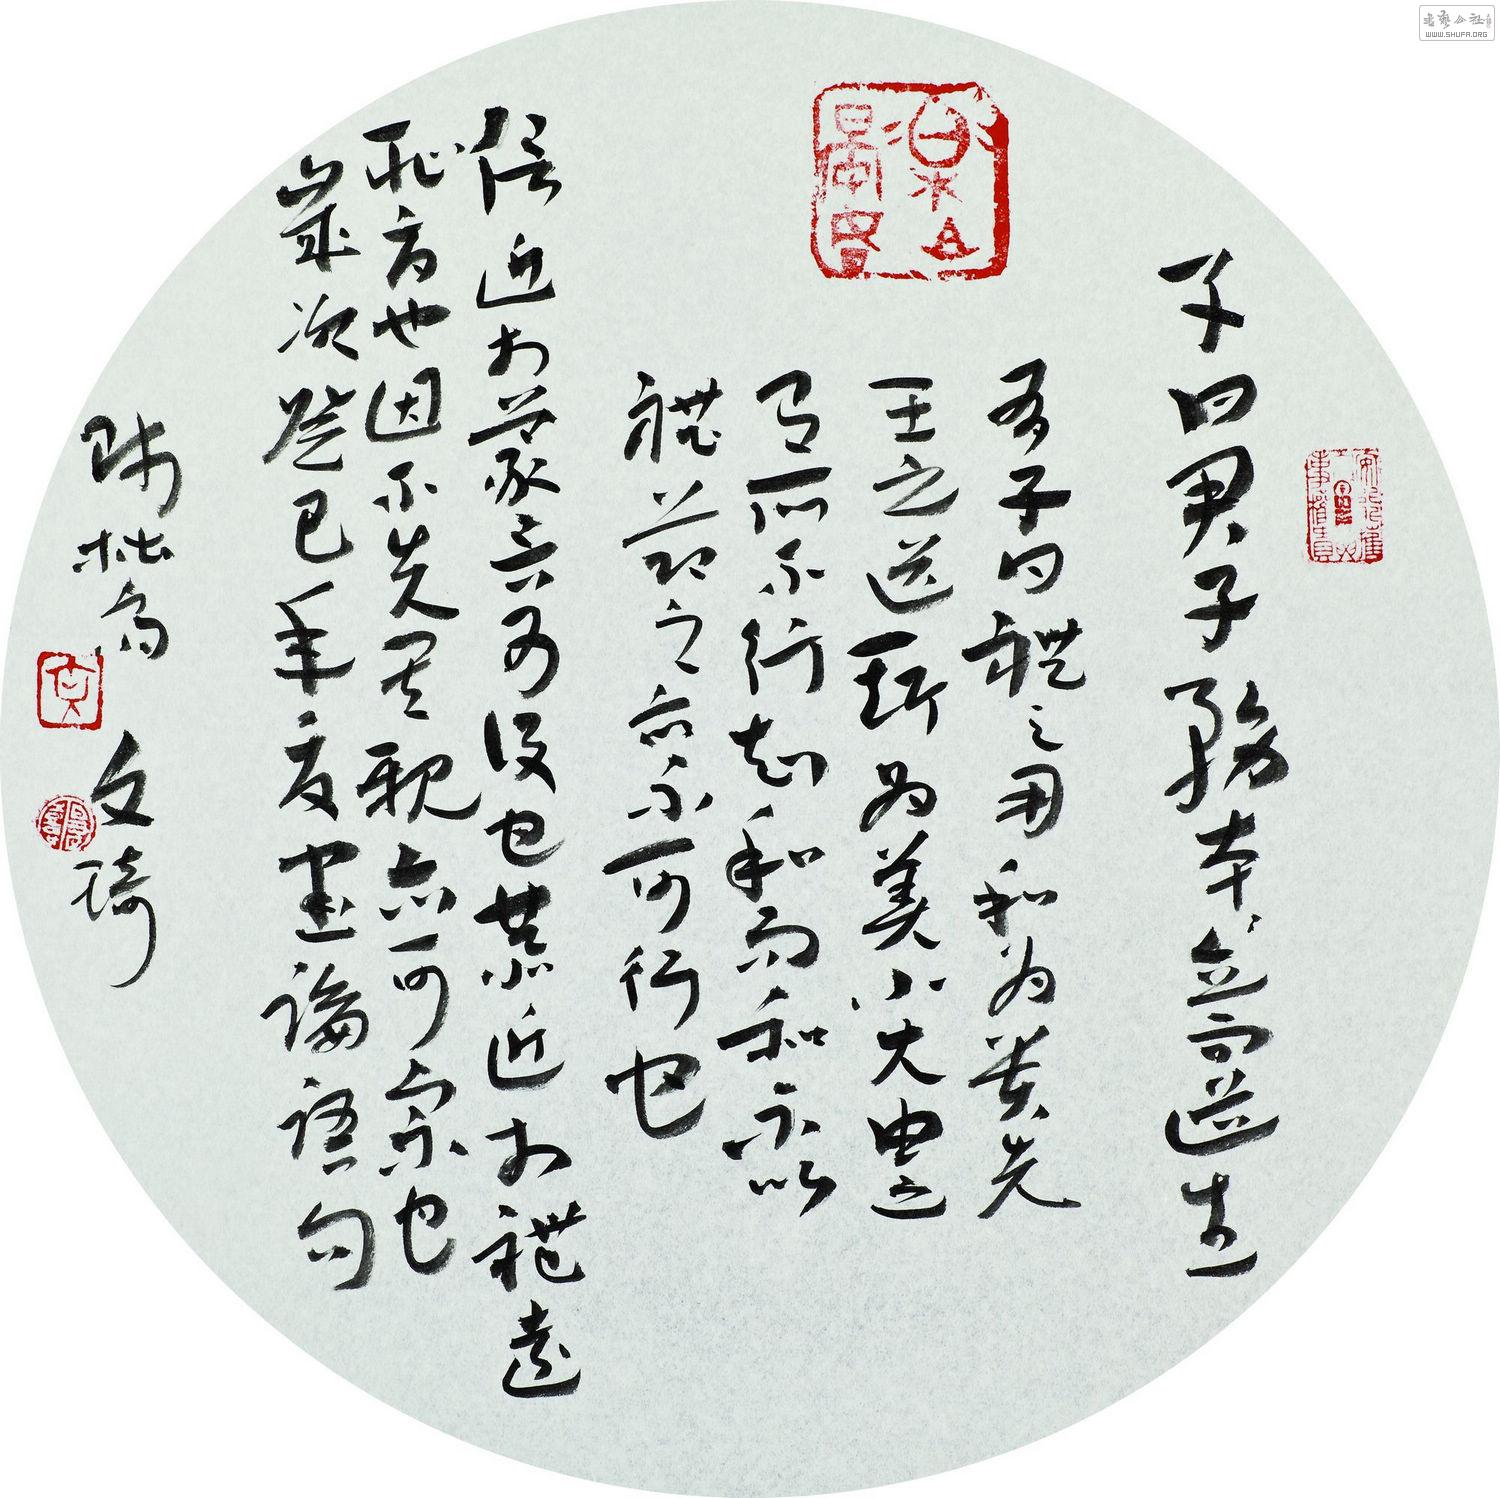 子曰君子務本本立而道生
有子曰禮之用和為貴先
王之道斯為美小大由之
有所不行知和而和不以
禮節之亦不可行也
信近於義言可復也恭近於禮遠
恥辱也因不失其親亦可宗也
歲次癸巳年夏書論語句
陋拙斋 文琦
WWW.SHUFA.ORG